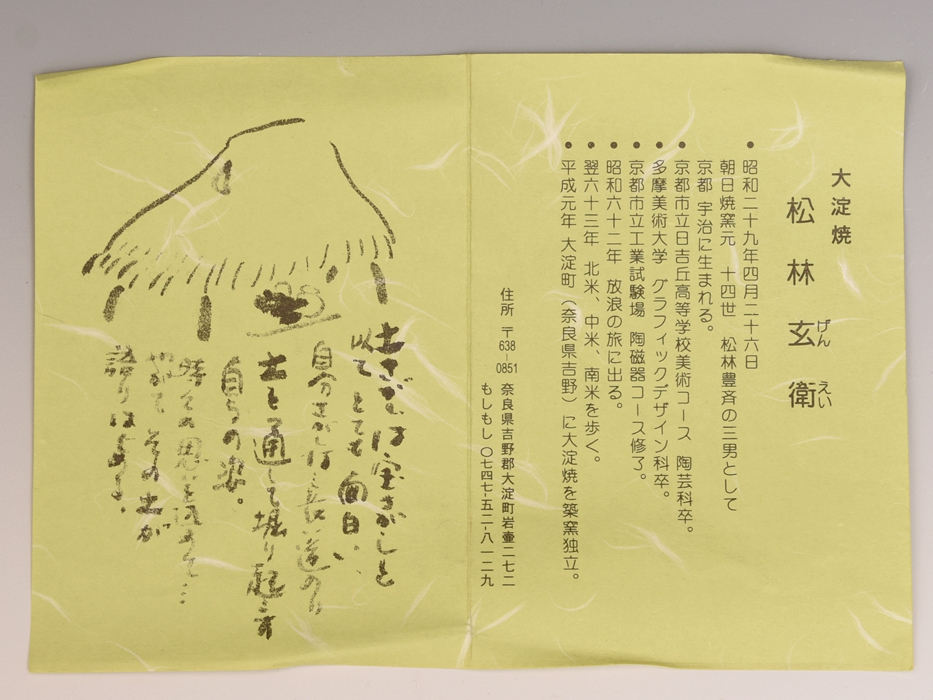 大淀焼
松林玄衛
げん
えい
●昭和二十九年四月二十六日
朝日焼窯元 十四世 松林豊斉の三男として
京都 宇治に生まれる。
●京都市立日吉丘高等学校美術コース 陶芸科卒。
●多摩美術大学 グラフィックデザイン科卒。
●京都市立工業試験場 陶磁器コース修了。
●昭和六十二年 放浪の旅に出る。
●翌六十三年 北米、中米、南米を歩く。
●平成元年 大淀町（奈良県吉野）に大淀焼を築窯独立。
住所 〒638-0851 奈良県吉野郡大淀町岩壷二七二
もしもし 〇七四七-五二-八一二九
土さがしは宝さがしと
似てとても面白い
自分さがし
土を通して堀り起こす
自らの姿。
その土が
誇りは